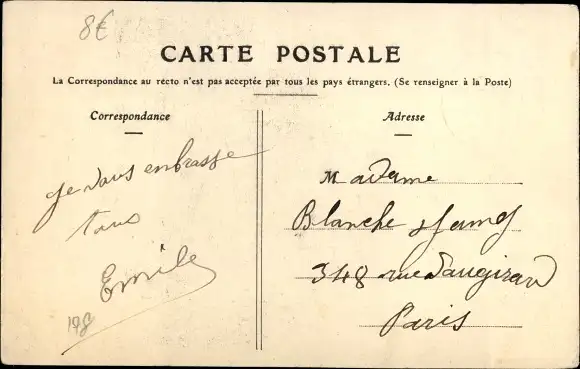 8€
CARTE POSTALE
La Correspondance au recto n'est pas acceptée par tous les pays étrangers. (Se renseigner à la Poste)
Correspondance
Je vous embrasse
tous
Emile
198
Adresse
Madame
Blanche
348 rue Vaugirard
Paris